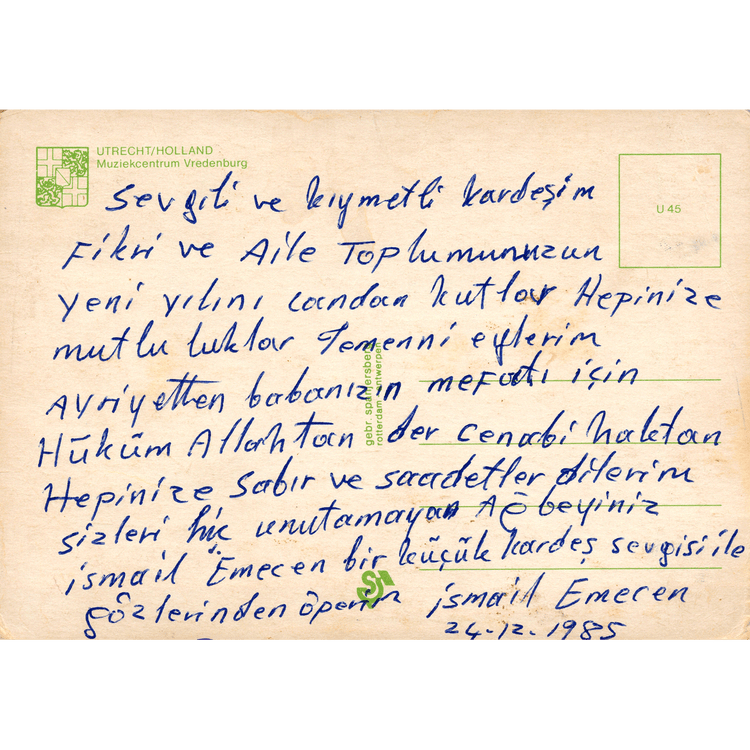 UTRECHT/HOLLAND
Muziekcentrum Vredenburg
U 45
Sevgili ve kıymetli kardeşim
Fikri ve Aile Toplumunuzun
yeni yılını candan kutlar Hepinize
mutlu luklar Temenni eylerim
Ayriyetten babanızın mefatı için
Hüküm Allahtan der cenabi haktan
Hepinize sabır ve saadetler dilerim
sizleri hiç unutamayan Ağbeyiniz
ismail Emecen bir küçük kardeş sevgisi ile
gözlerinden öperim ismail Emecen
24-12-1985
gebr. spanjersberg
rotterdam antwerpen